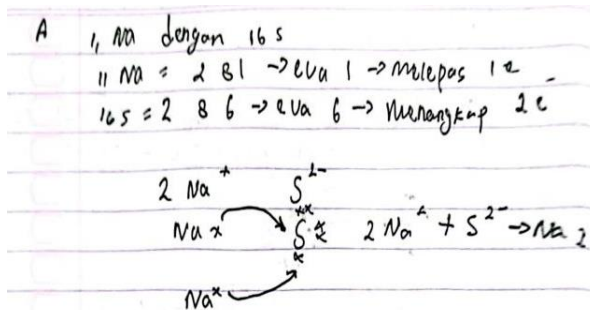 A 11 Na dengan 16 S
11 Na = 2 8 1 → eva 1 → melepas 1 e
16 S = 2 8 6 → eva 6 → menangkap 2 e⁻
2 Na⁺ S²⁻
Na x S 2 Na⁺ + S²⁻ → Na 2
Na x